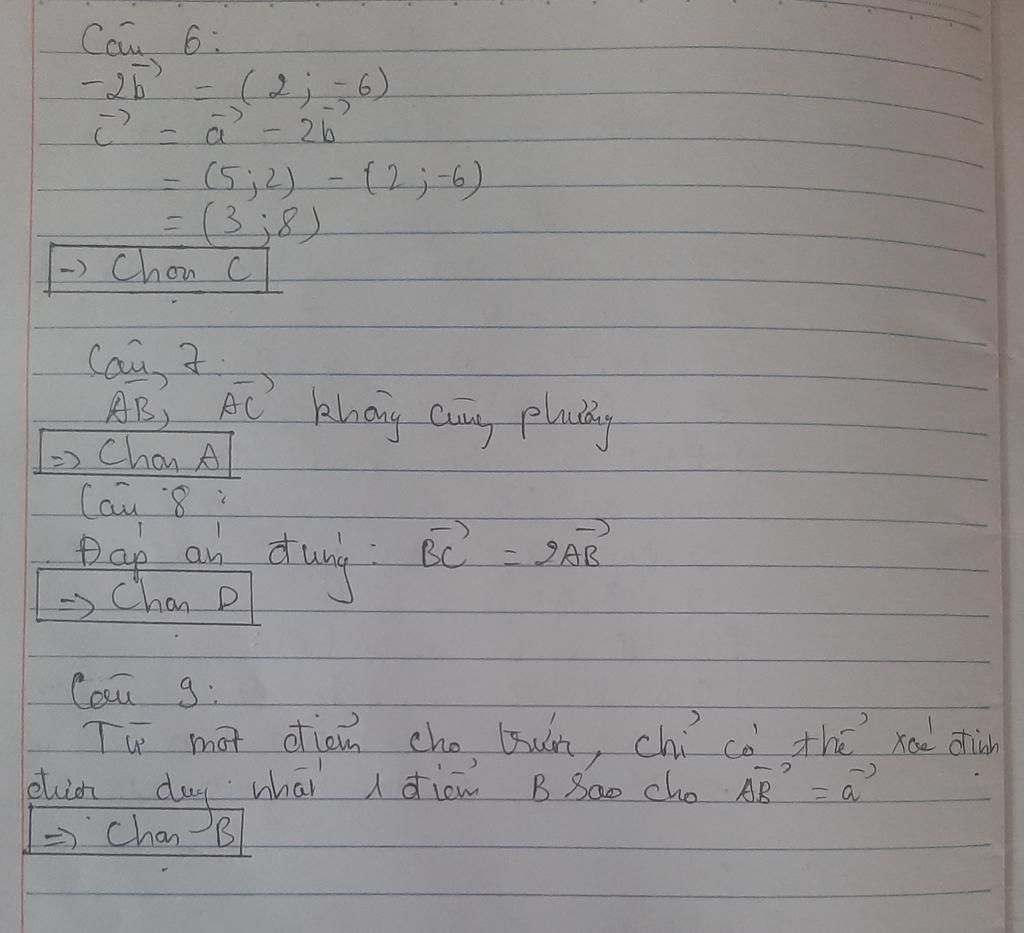 Câu 6:
-2b⃗ = (2; -6)
c⃗ = a⃗ - 2b⃗
= (5;2) - (2;-6)
= (3;8)
-> Chọn C
Câu 7:
AB⃗, AC⃗ không cùng phương
=> Chọn A
Câu 8:
Đáp án đúng: BC⃗ = 2AB⃗
=> Chọn D
Câu 9:
Từ một điểm cho trước, chỉ có thể xác định
được duy nhất 1 điểm B sao cho AB⃗ = a⃗
=> Chọn B